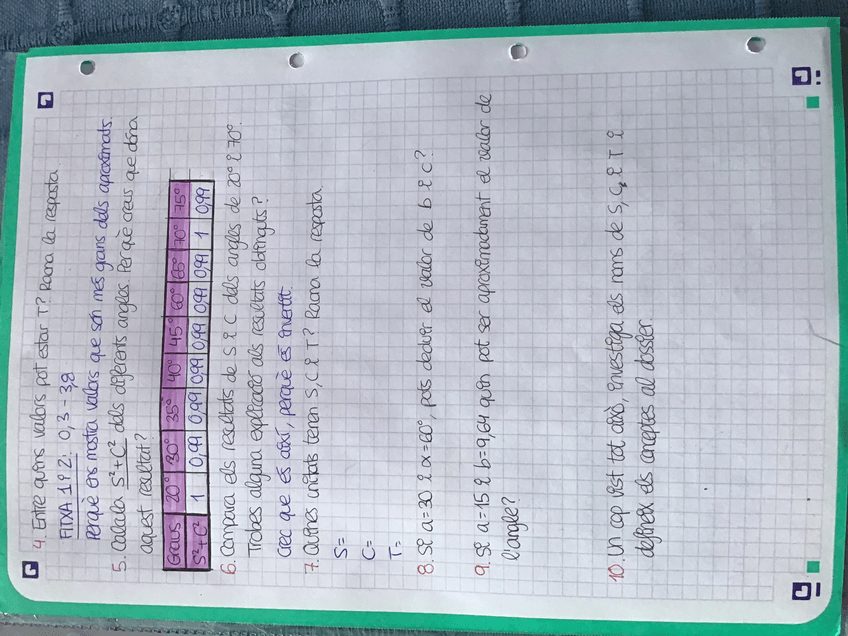 4. Entre quins valors pot estar T? Raona la resposta.
FITXA 1 i 2: 0,3 - 3,8
Perquè ens mostra valors que són més grans dels aproximats.
5. Calcula S²+C² dels diferents angles. Perquè creus que dóna
aquest resultat?
Graus 20° 30° 35° 40° 45° 60° 65° 70° 75°
S²+C² 1 0,99 0,99 0,99 0,99 0,99 0,99 1 0,99
6. Compara els resultats de S i C dels angles de 20° i 70°.
Trobes alguna explicació als resultats obtinguts?
Crec que és així, perquè és invertit.
7. Quines unitats tenen S, C i T? Raona la resposta.
S=
C=
T=
8. Si a=30 i α=60°, pots deduir el valor de b i c?
9. Si a=15 i b=9,64 quin pot ser aproximadament el valor de
l'angle?
10. Un cop vist tot això, investiga els noms de S, C, i T i
defineix els conceptes al dossier.